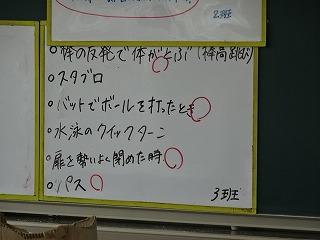 2班
○棒の反発で体がとぶ(棒高跳び)
○スタブロ
○バットでボールを打ったとき
○水泳のクイックターン
○扉を勢いよく閉めた時
○パス
3班